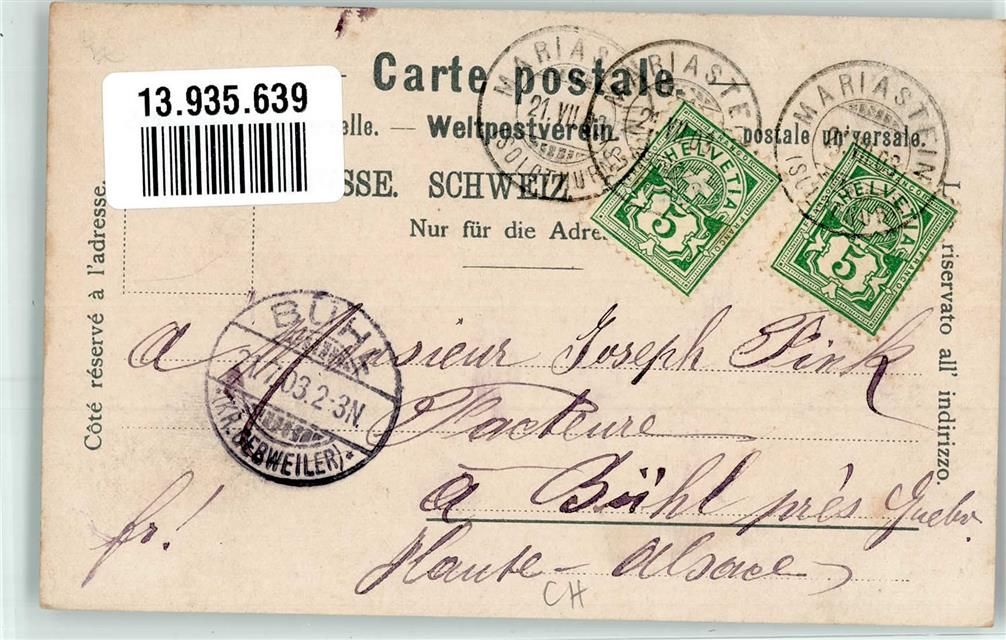 Carte postale.
13.935.639
elle. — Weltpostverein. postale universale.
SSE. SCHWEIZ.
Nur für die Adre
Côté réservé à l'adresse.
riservato all' indirizzo.
MARIASTEIN
21 VII 03
(SOLOTHURN)
MARIASTEIN
MARIASTEIN
HELVETIA
FRANCO
5
HELVETIA
FRANCO
5
BÜHL
21.7.03.2-3N.
*(KR.GEBWEILER)*
a Monsieur Joseph Fink
Facteure
a Bühl près Guebv
fr!
Haute-Alsace
CH